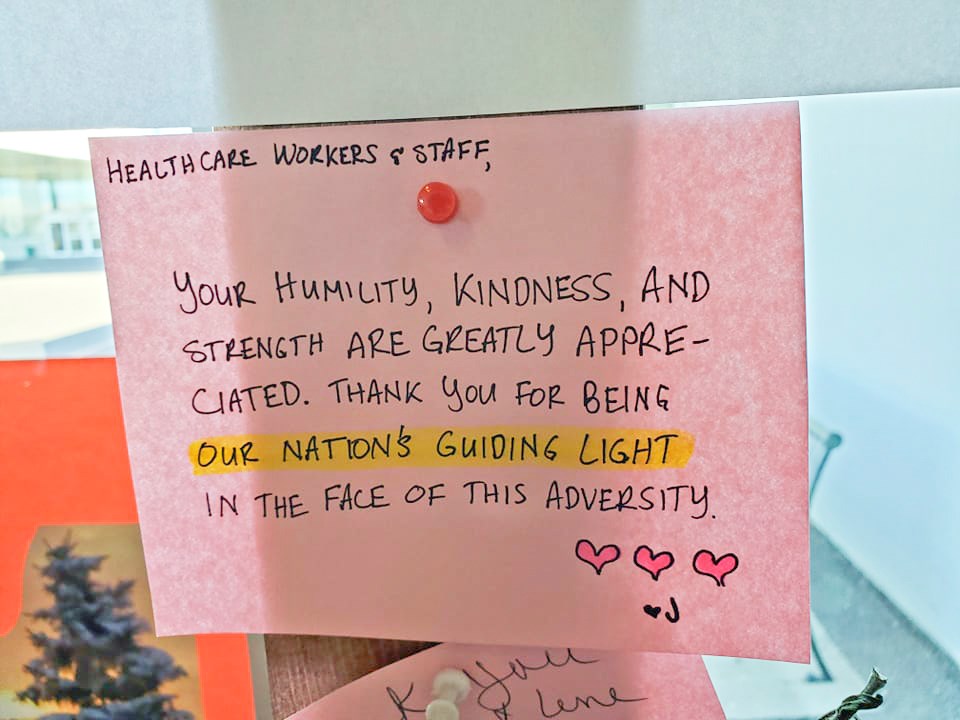 HEALTHCARE WORKERS & STAFF,
YOUR HUMILITY, KINDNESS, AND
STRENGTH ARE GREATLY APPRE-
CIATED. THANK YOU FOR BEING
OUR NATION'S GUIDING LIGHT
IN THE FACE OF THIS ADVERSITY.
♥J
You